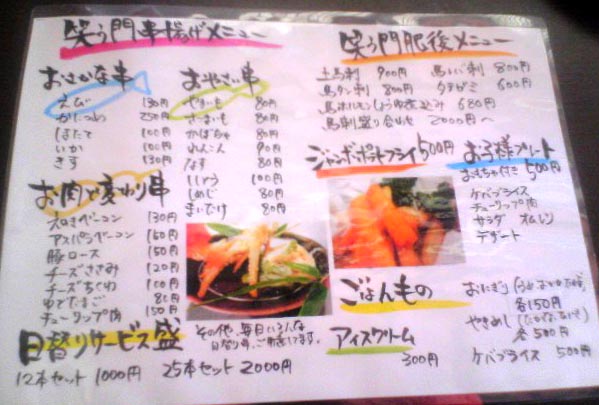 笑う門串揚げメニュー
おさかな串
えび 130円
かにつめ 250円
ほたて 100円
いか 100円
きす 130円
おやさい串
やまいも 80円
さつまいも 80円
かぼちゃ 80円
れんこん 90円
なす 80円
ししとう 100円
しめじ 80円
まいたけ 80円
お肉と変わり串
えのきベーコン 130円
アスパラベーコン 150円
豚ロース 150円
チーズささみ 120円
チーズちくわ 100円
ゆでたまご 80円
チューリップ肉 150円
日替りサービス盛
12本セット 1000円 25本セット 2000円
その他、毎日いろんな
日替り串、ご用意してます。
笑う門肥後メニュー
上馬刺 900円
馬タン刺 800円
馬ホルモンしょうゆ煮込み 680円
馬刺盛り合わせ 2000円〜
馬レバ刺 800円
タテガミ 600円
ジャンボポテトフライ 500円
お子様プレート
おもちゃ付き 500円
ケバブライス
チューリップ肉
サラダ オムレツ
デザート
ごはんもの
おにぎり
各150円
やきめし
各500円
ケバブライス 500円
アイスクリーム
300円